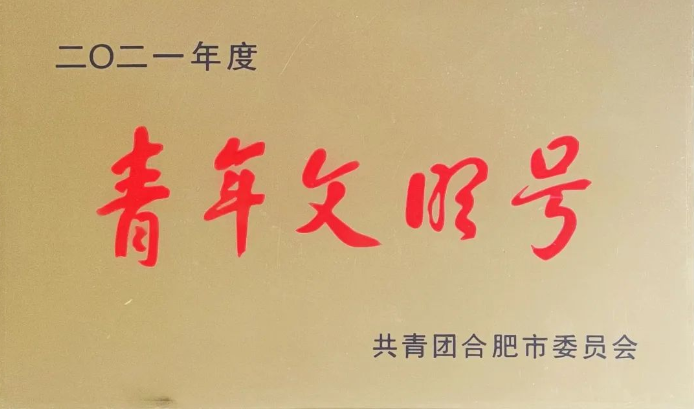 二〇二一年度
青年文明号
共青团合肥市委员会